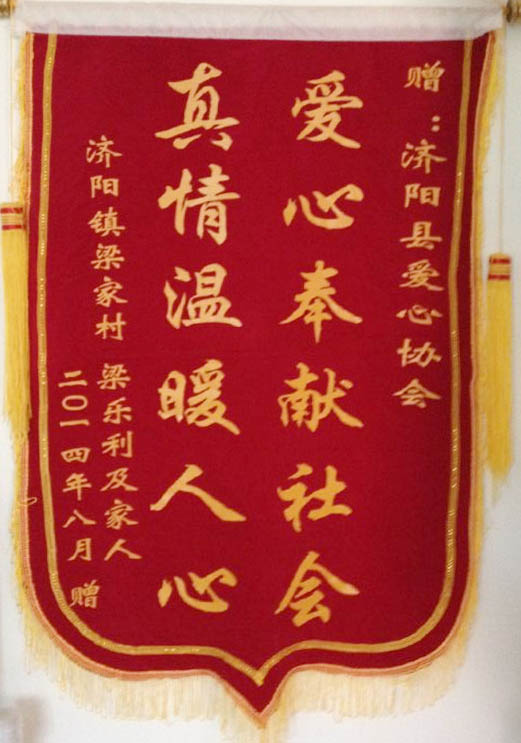 赠：济阳县爱心协会
爱心奉献社会
真情温暖人心
济阳镇梁家村 梁乐利及家人
二〇一四年八月 赠